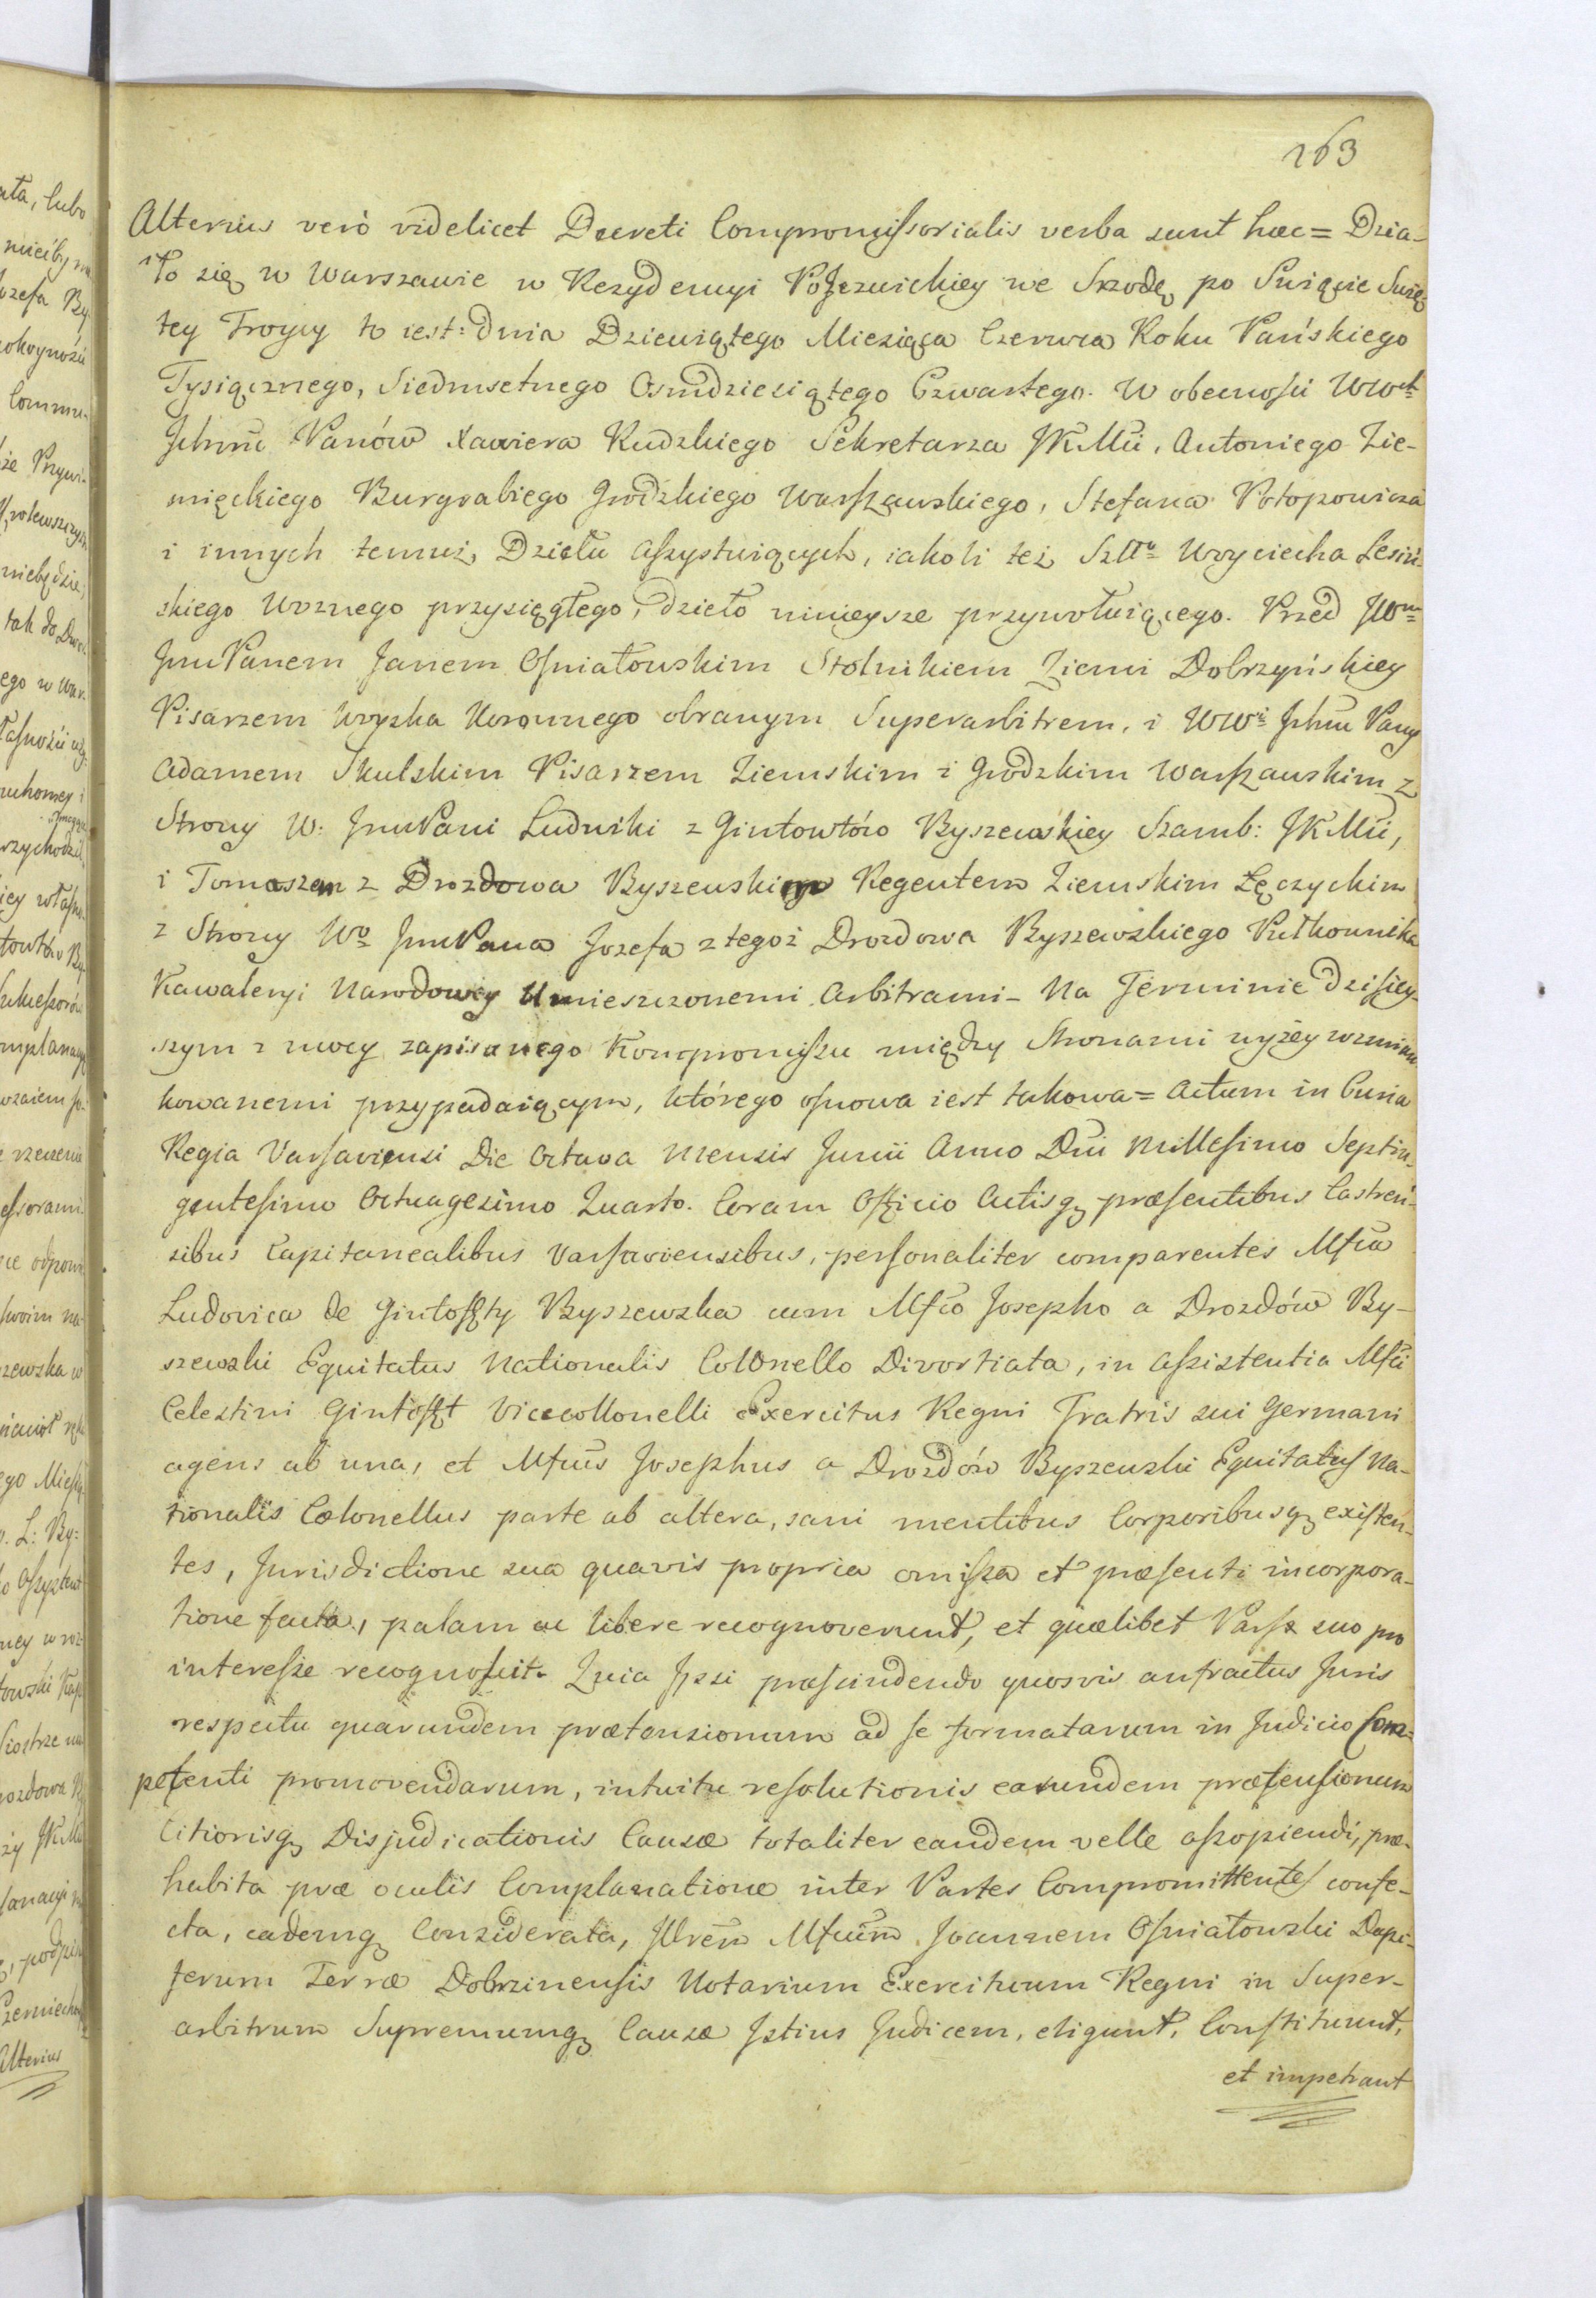 163
Alterius verò videlicet Decreti Compromissorialis verba sunt hæc = Dzia-
ło się w Warszawie w Rezydencyi PoJezuickiey we Szrodę po Swięcie Swię-
tey Troycy to iest: dnia Dziewiątego Miesiąca Czerwca Roku Pańskiego
Tysiącznego, Siedmsetnego Osmdziesiątego Czwartego. W obecnosci WWch
Jchmć Panów Xawiera Rudzkiego Sekretarza JKMci, Antoniego Zie-
mięckiego Burgrabiego Grodzkiego Warszawskiego, Stefana Potopowicza
i innych temuż Dziełu assystuiących, iakoli też Szltо Woyciecha Lesiń-
skiego Woznego przysięgłego, dzieło ninieysze przywołuiącego. Przed JWm
JmPanem Janem Osniałowskim Stolnikiem Ziemi Dobrzyńskiey
Pisarzem Woyska Koronnego obranym Superarbitrem, i WWi Jchmć Pany
Adamem Skulskim Pisarzem Ziemskim i Grodzkim Warszawskim z
Strony W: JmPani Ludwiki z Gintowtów Byszewskiey Szamb: JKMci,
i Tomaszem z Drozdowa Byszewskim Regentem Ziemskim Łęczyckim
z Strony Wo JmPana Jozefa z tegoż Drozdowa Byszewskiego Pułkownika
Kawaleryi Narodowey Umieszczonemi Arbitrami - Na Terminie dzisiey-
szym z mocy zapisanego Kompromissu między Stronami wyżey wzmian-
kowanemi przypadaiącym, którego osnowa iest takowa = Actum in Curia
Regia Varsaviensi Die Octava Mensis Junii Anno Dni Millesimo Septin-
gentesimo Octuagesimo Quarto. Coram Officio Actisq præsentibus Castren-
sibus Capitanealibus Varsaviensibus, personaliter comparentes Mfca
Ludovica de Gintowty Byszewska cum Mfco Josepho a Drozdów By-
szewski Equitatus Nationalis Collonello Divortiata, in assistentia Mfci
Celestini Gintowt Vicecollonelli Exercitus Regni Fratris sui Germani
agens ab una, et Mfcus Josephus a Drozdów Byszewski Equitatus Na-
tionalis Colonellus parte ab altera, sani mentibus Corporibusq existen-
tes, Jurisdictione sua quavis propria omissa et præsenti incorpora-
tione facta, palam ac libere recognoverunt, et quælibet Pars suo pro
interesse recognoscit. Quia Jpsi præscindendo quosvis anfractus Juris
respectu quarundem prætensionum ad se formatarum in Judicio Com-
petenti promovendarum, intuitu resolutionis earundem prætensionum
Citiorisq Disjudicationis Causæ totaliter eandem velle assopiendi, præ-
habita præ oculis Complanatione inter Partes Compromittentes confe-
cta, eademq Considerata, Jllrem Mfcum Joannem Osniałowski Dapi-
ferum Terræ Dobrzinensis Notarium Exercituum Regni in Super-
arbitrum Supremumq Causæ Jstius Judicem, eligunt, Constituunt,
et impetrant